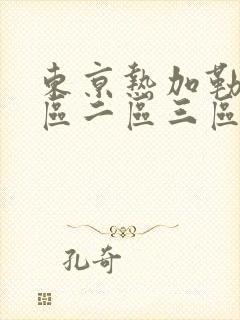 東京熱加勒
區二區三區
孔奇